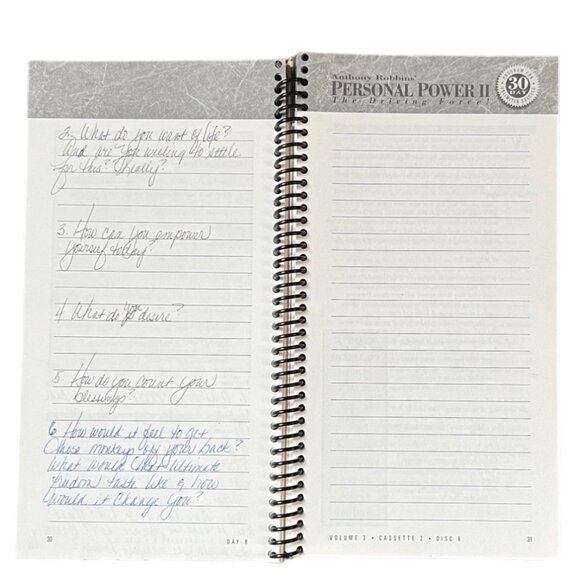 2. What do you want of life?
And are you willing to settle
for this? Really?
3. How can you empower
yourself today?
4. What do you desire?
5. How do you count your
blessings?
6. How would it feel to get
those monkeys off your back?
What would that ultimate
freedom taste like & how
would it change you?
30
DAY 8
Anthony Robbins'
PERSONAL POWER II
The Driving Force!
30
DAY
VOLUME 3 • CASSETTE 2 • DISC 6
31